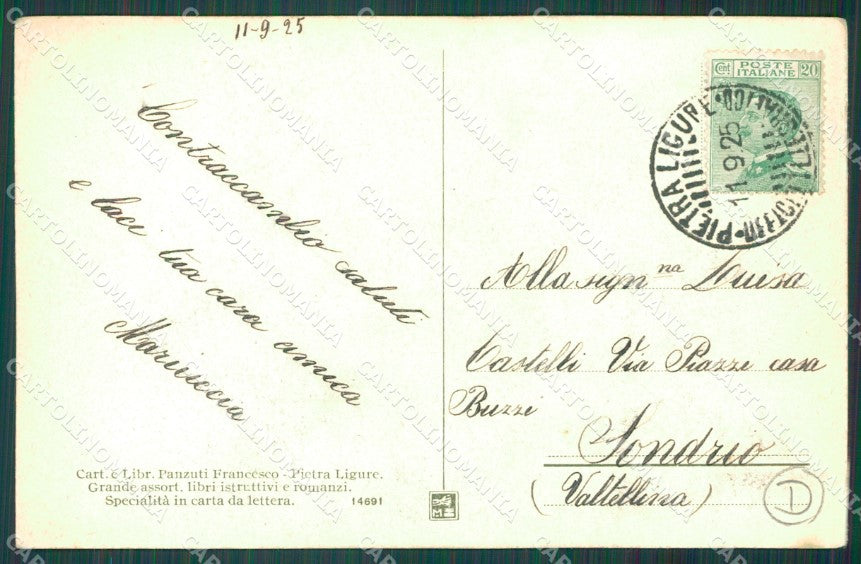 11-9-25
Contraccambio saluti
e baci tua cara amica
Mariuccia
Cart. e Libr. Panzuti Francesco - Pietra Ligure.
Grande assort. libri istruttivi e romanzi.
Specialità in carta da lettera.
14691
Cent. POSTE ITALIANE 20
PIETRA LIGURE
11 9 25
Alla sign na Luisa
Castelli Via Piazzi casa
Buzzi
Sondrio
(Valtellina)
D
CARTOLINOMANIA